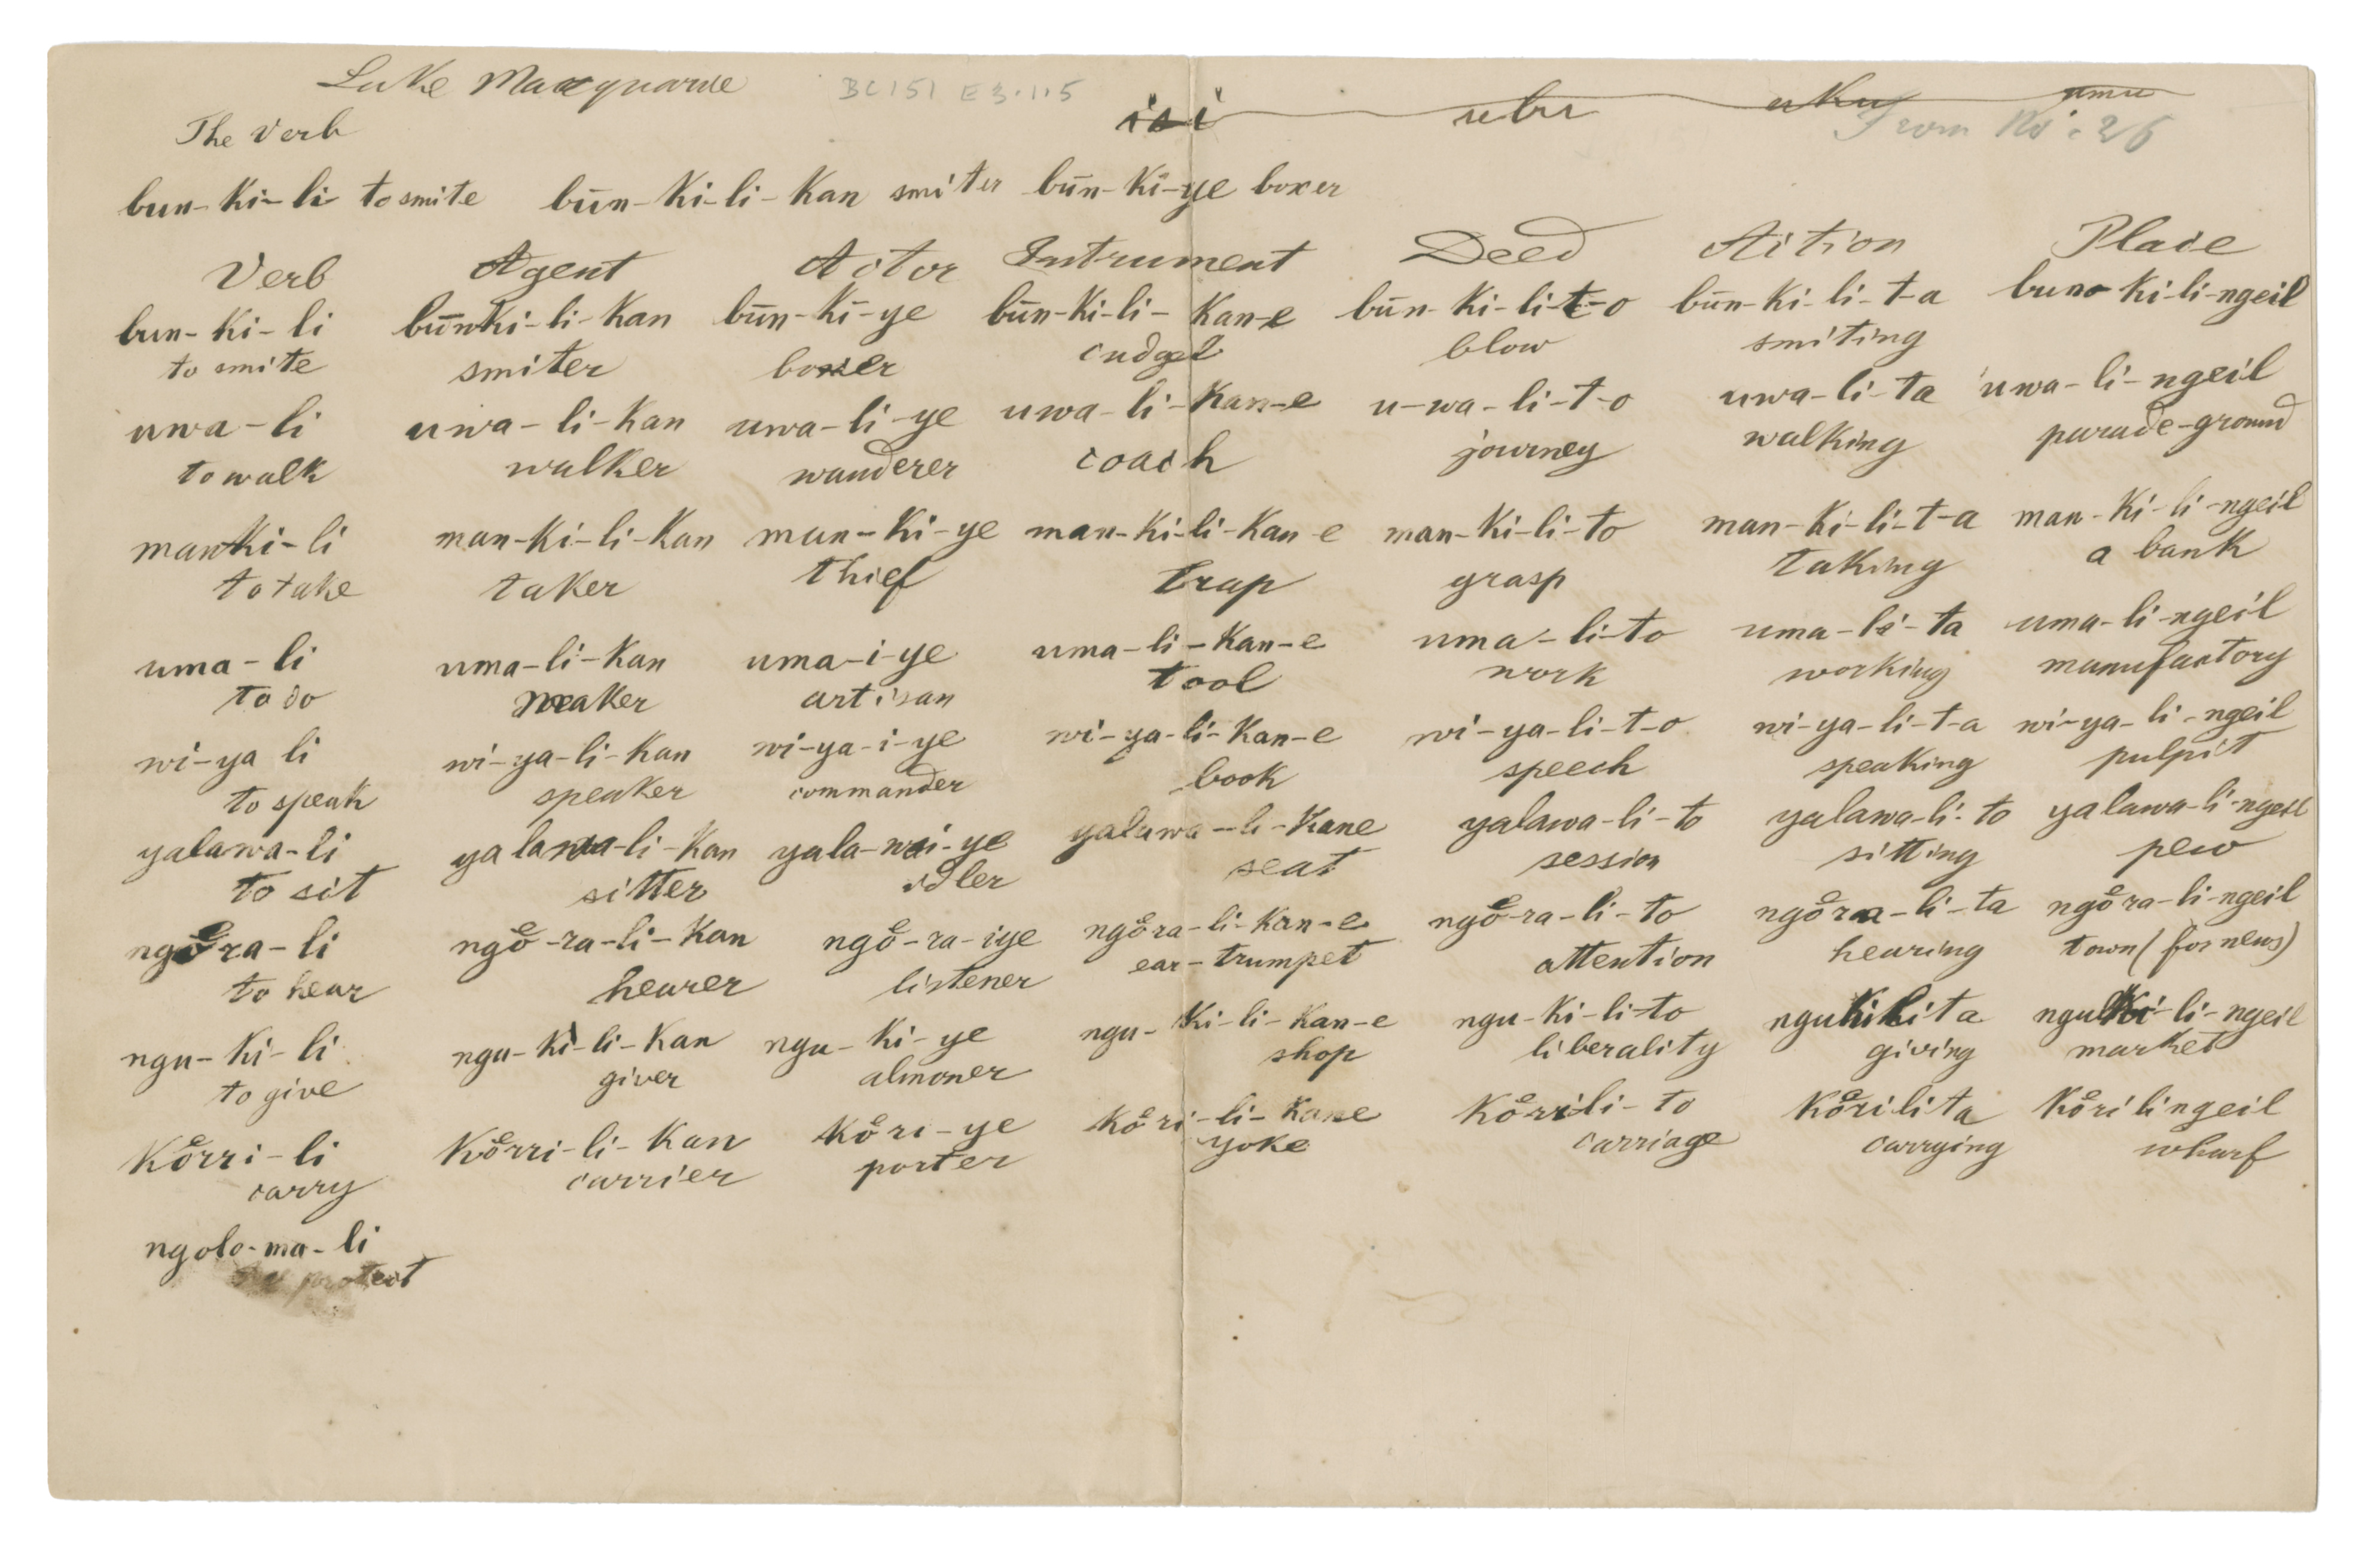 Lake Macquarie BC151 E3.1.15
isi ubu uku umu
The Verb From No. 26
bun-ki-li to smite būn-ki-li-kan smiter būn-ki-ye boxer
Verb Agent Actor Instrument Deed Action Place
bun-ki-li būn-ki-li-kan būn-kī-ye būn-ki-li-kan-e būn-ki-li-t-o būn-ki-li-t-a bun-ki-li-ngeil
to smite smiter boxer cudgel blow smiting
uwa-li uwa-li-kan uwa-li-ye uwa-li-kan-e u-wa-li-t-o uwa-li-ta uwa-li-ngeil
to walk walker wanderer coach journey walking parade-ground
man-ki-li man-ki-li-kan man-ki-ye man-ki-li-kan-e man-ki-li-to man-ki-li-t-a man-ki-li-ngeil
to take taker thief trap grasp taking a bank
uma-li uma-li-kan uma-i-ye uma-li-kan-e uma-li-to uma-li-ta uma-li-ngeil
to do maker artisan tool work working manufactory
wi-ya li wi-ya-li-kan wi-ya-i-ye wi-ya-li-kan-e wi-ya-li-t-o wi-ya-li-t-a wi-ya-li-ngeil
to speak speaker commander book speech speaking pulpit
yalawa-li yalawa-li-kan yala-wai-ye yalawa-li-kane yalawa-li-to yalawa-li-to yalawa-li-ngeil
to sit sitter idler seat session sitting pew
ngo̊ra-li ngo̊-ra-li-kan ngo̊-ra-iye ngo̊ra-li-kan-e ngo̊-ra-li-to ngo̊ra-li-ta ngo̊ra-li-ngeil
to hear hearer listener ear-trumpet attention hearing town (for news)
ngu-ki-li ngu-ki-li-kan ngu-ki-ye ngu-ki-li-kan-e ngu-ki-li-to ngukilita nguki-li-ngeil
to give giver almoner shop liberality giving market
ko̊rri-li ko̊rri-li-kan ko̊ri-ye ko̊ri-li-kane ko̊rrili-to ko̊rilita ko̊rilingeil
carry carrier porter yoke carriage carrying wharf
ngolo-ma-li
to protect